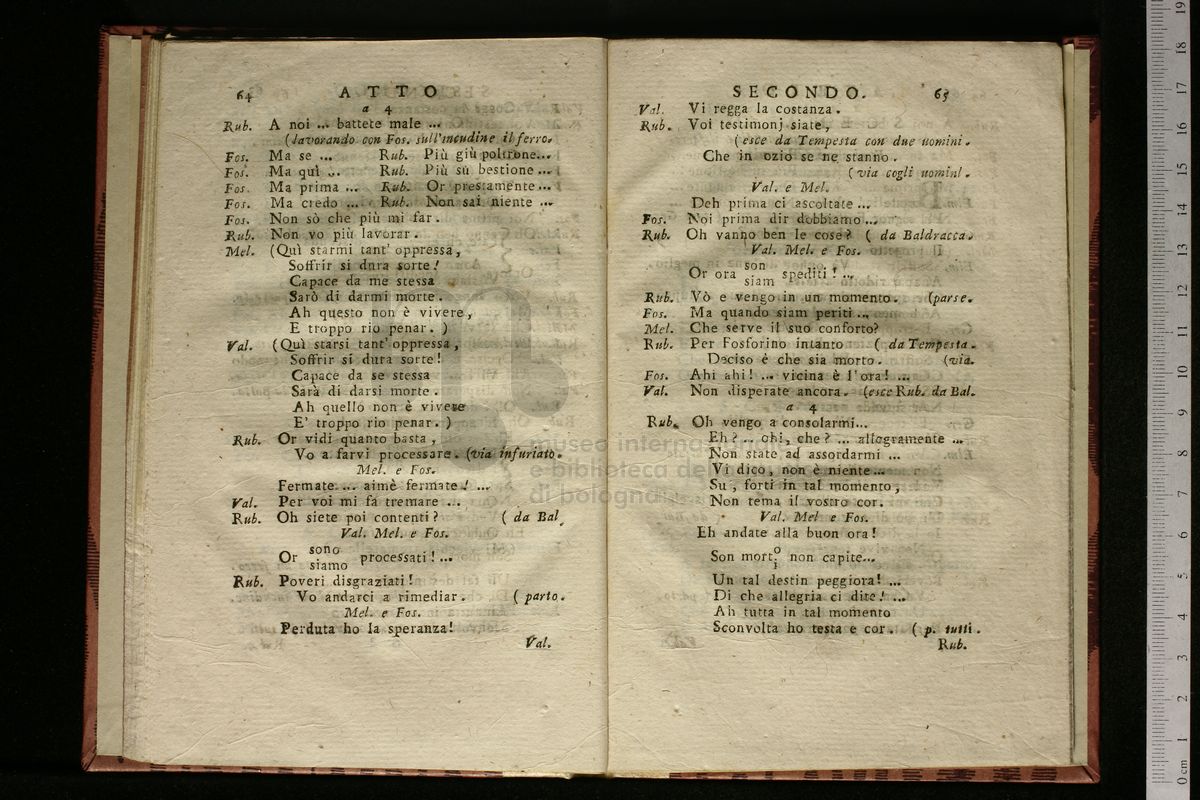 64 ATTO
a 4
Rub. A noi ... battete male ...
(lavorando con Fos. sull'incudine il ferro.
Fos. Ma se ... Rub. Più giù poltrone...
Fos. Ma quì ... Rub. Più sù bestione ...
Fos. Ma prima ... Rub. Or prestamente ...
Fos. Ma credo ... Rub. Non sai niente ...
Fos. Non sò che più mi far.
Rub. Non vo più lavorar.
Mel. (Quì starmi tant' oppressa,
Soffrir si dura sorte!
Capace da me stessa
Sarò di darmi morte.
Ah questo non è vivere,
E troppo rio penar. )
Val. (Quì starsi tant' oppressa,
Soffrir si dura sorte!
Capace da se stessa
Sarà di darsi morte.
Ah quello non è vivere
E' troppo rio penar. )
Rub. Or vidi quanto basta,
Vo a farvi processare. (via infuriato.
Mel. e Fos.
Fermate ... aimè fermate! ...
Val. Per voi mi fà tremare ...
Rub. Oh siete poi contenti? ( da Bal
Val. Mel. e Fos.
Or sono siamo processati! ...
Rub. Poveri disgraziati!
Vo andarci a rimediar. ( parto.
Mel. e Fos.
Perduta ho la speranza!
Val.
SECONDO. 65
Val. Vi regga la costanza.
Rub. Voi testimonj siate,
(esce da Tempesta con due uomini.
Che in ozio se ne stanno.
(via cogli uomini.
Val. e Mel.
Deh prima ci ascoltate ...
Fos. Noi prima dir dobbiamo ...
Rub. Oh vanno ben le cose? ( da Baldracca.
Val. Mel. e Fos.
Or ora son siam spediti! ...
Rub. Vò e vengo in un momento. (parse.
Fos. Ma quando siam periti ...
Mel. Che serve il suo conforto?
Rub. Per Fosforino intanto ( da Tempesta.
Deciso è che sia morto. (via.
Fos. Ahi ahi! ... vicina è l'ora! ...
Val. Non disperate ancora. (esce Rub. da Bal.
a 4
Rub. Oh vengo a consolarmi...
Eh? ... ohi, che? ... allegramente ...
Non state ad assordarmi ...
Vi dico, non è niente ...
Su, forti in tal momento,
Non tema il vostro cor.
Val. Mel e Fos.
Eh andate alla buon ora!
Son morto i non capite...
Un tal destin peggiora! ...
Di che allegria ci dite! ...
Ah tutta in tal momento
Sconvolta ho testa e cor. ( p. tutti.
Rub.
museo internazionale
e biblioteca della
di bologna